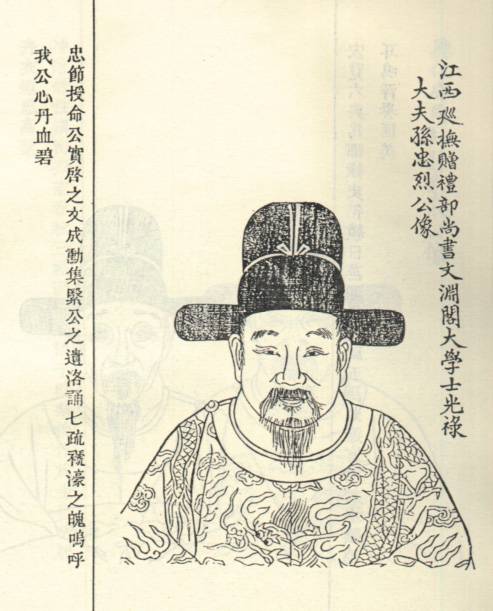 江西廵撫贈禮部尚書文淵閣大學士光祿
大夫孫忠烈公像
忠節授命公實啓之文成勳集緊公之遺洛誦七疏褫濠之魄嗚呼
我公心丹血碧